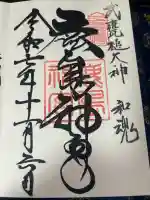 武甕槌大神 和魂
鹿島神宮
令和 年十一月六日